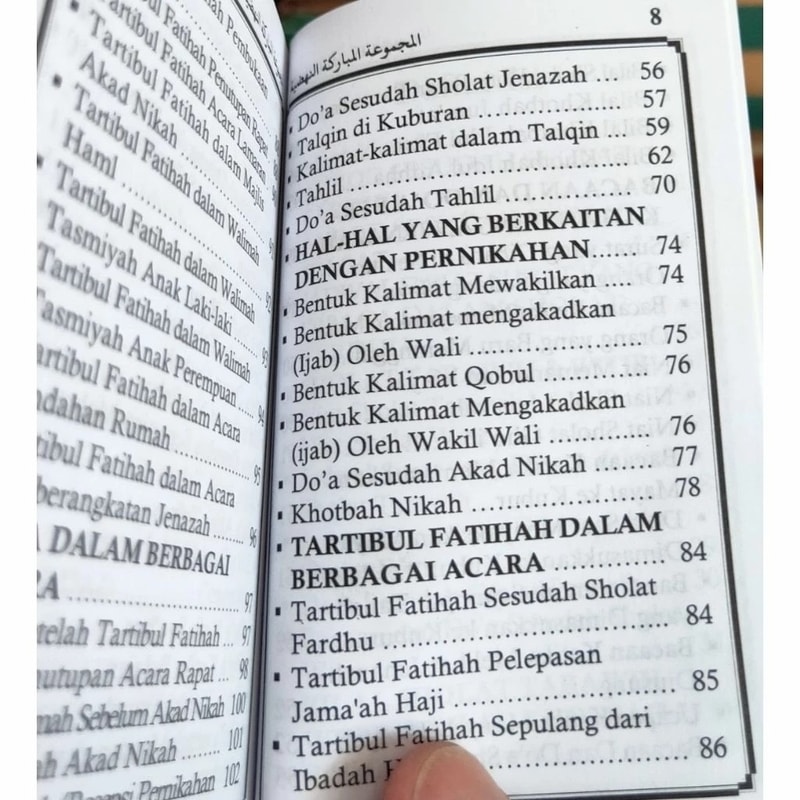 Tartibul Fatihah Pembukaan
Tartibul Fatihah Penutupan Rapat
Tartibul Fatihah Acara Lamaran
▪ Tartibul Fatihah dalam Majlis
Akad Nikah
▪ Tartibul Fatihah dalam Walimah
Haml
▪ Tartibul Fatihah dalam Walimah
Tasmiyah Anak Laki-laki ..... 92
Tartibul Fatihah dalam Walimah
Tasmiyah Anak Perempuan ..... 93
artibul Fatihah dalam Acara
ndahan Rumah ..... 94
tibul Fatihah dalam Acara
berangkatan Jenazah ..... 96
DALAM BERBAGAI
RA ..... 97
telah Tartibul Fatihah ... 97
nutupan Acara Rapat ... 98
mah Sebelum Akad Nikah 100
h Akad Nikah ..... 101
Resepsi Pernikahan 102
8
المجموعة المباركة النهضية
▪ Do'a Sesudah Sholat Jenazah .... 56
▪ Talqin di Kuburan ..... 57
▪ Kalimat-kalimat dalam Talqin ... 59
▪ Tahlil ..... 62
▪ Do'a Sesudah Tahlil ..... 70
▪ HAL-HAL YANG BERKAITAN
DENGAN PERNIKAHAN...... 74
▪ Bentuk Kalimat Mewakilkan .... 74
▪ Bentuk Kalimat mengakadkan
(Ijab) Oleh Wali ..... 75
▪ Bentuk Kalimat Qobul ..... 76
▪ Bentuk Kalimat Mengakadkan
(ijab) Oleh Wakil Wali ..... 76
▪ Do'a Sesudah Akad Nikah ..... 77
▪ Khotbah Nikah ..... 78
▪ TARTIBUL FATIHAH DALAM
BERBAGAI ACARA ..... 84
▪ Tartibul Fatihah Sesudah Sholat
Fardhu ..... 84
▪ Tartibul Fatihah Pelepasan
Jama'ah Haji ..... 85
▪ Tartibul Fatihah Sepulang dari
Ibadah H ..... 86